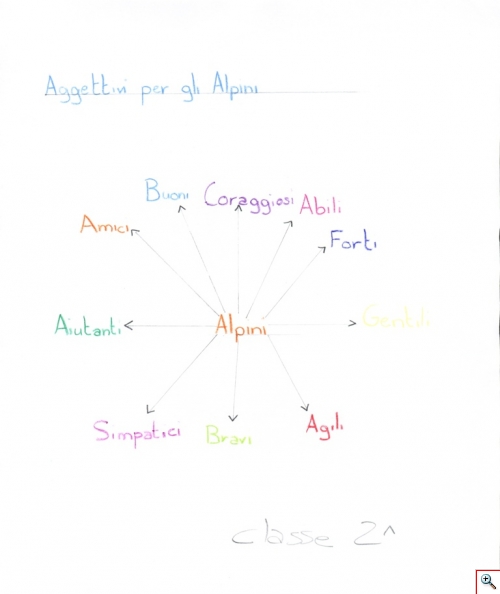 Aggettivi per gli Alpini
Buoni
Coraggiosi
Abili
Amici
Forti
Aiutanti
Alpini
Gentili
Simpatici
Bravi
Agili
classe 2^